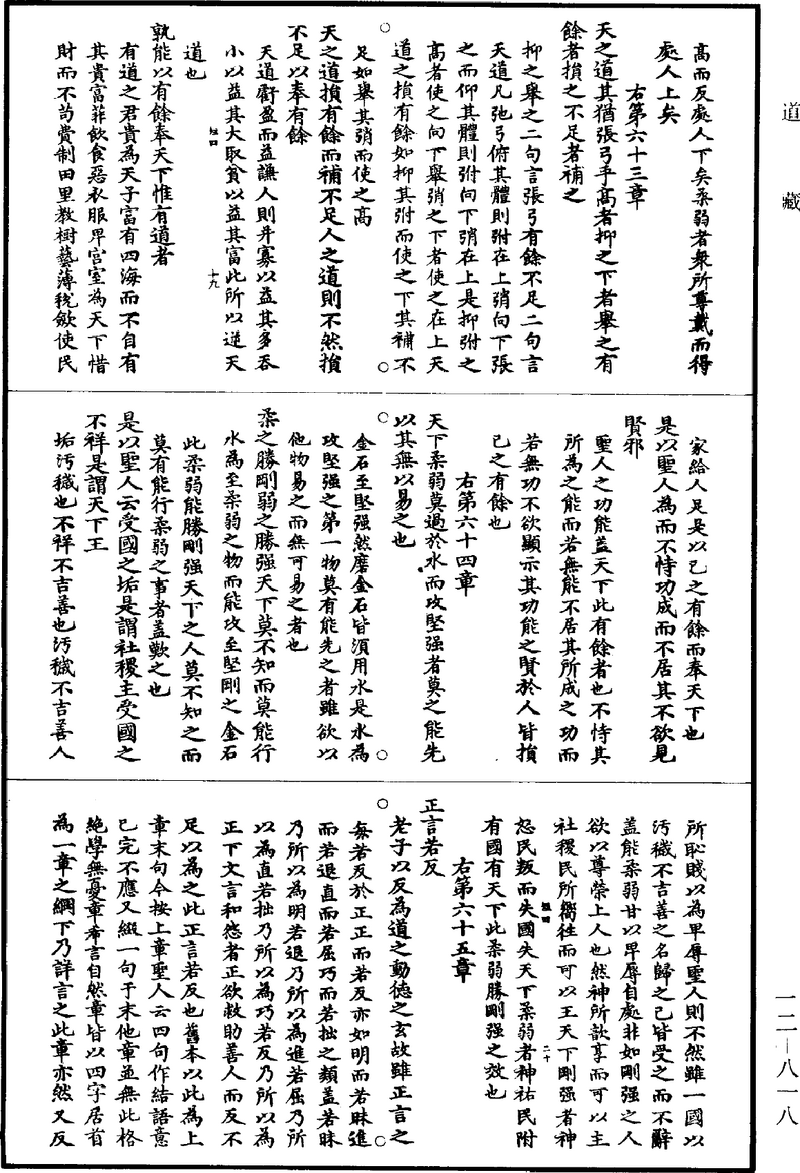 道藏
高而反處人下矣柔弱者衆所尊戴而得
處人上矣
右第六十三章
天之道其猶張弓乎高者抑之下者舉之有
餘者損之不足者補之
抑之舉之二句言張弓有餘不足二句言
天道凡弛弓俯其體則弣在上弰向下張
之而仰其體則弣向下弰在上是抑弣之
高者使之向下舉弰之下者使之在上天
道之損有餘如抑其弣而使之下其補不
足如舉其弰而使之高
天之道損有餘而補不足人之道則不然損
不足以奉有餘
天道虧盈而益謙人則并寡以益其多吞
小以益其大取貧以益其富此所以逆天
短四
十九
道也
孰能以有餘奉天下惟有道者
有道之君貴為天子富有四海而不自有
其貴富菲飲食惡衣服卑宮室為天下惜
財而不茍費制田里教樹藝薄稅斂使民
家給人足是以己之有餘而奉天下也
是以聖人為而不恃功成而不居其不欲見
賢邪
聖人之功能蓋天下此有餘者也不恃其
所為之能而若無能不居其所成之功而
若無功不欲顯示其功能之賢於人皆損
己之有餘也
右第六十四章
天下柔弱莫過於水而攻堅强者莫之能先
以其無以易之也
金石至堅强然磨金石皆須用水是水為
攻堅强之第一物莫有能先之者雖欲以
他物易之而無可易之者也
柔之勝剛弱之勝强天下莫不知而莫能行
水為至柔弱之物而能攻至堅剛之金石
此柔弱能勝剛强天下之人莫不知之而
莫有能行柔弱之事者蓋歎之也
是以聖人云受國之垢是謂社稷主受國之
不祥是謂天下王
垢汚穢也不祥不吉善也汚穢不吉善人
所恥賤以為卑辱聖人則不然雖一國以
汚穢不吉善之名歸之己皆受之而不辭
蓋能柔弱甘以卑辱自處非如剛强之人
欲以尊榮上人也然神所歆享而可以主
社稷民所嚮往而可以王天下剛强者神
怒民叛而失國失天下柔弱者神祐民附
短四
二十
有國有天下此柔弱勝剛强之效也
右第六十五章
正言若反
老子以反為道之動德之玄故雖正言之
每若反於正正而若反亦如明而若昧進
而若退直而若屈巧而若拙之類蓋若昧
乃所以為明若退乃所以為進若屈乃所
以為直若拙乃所以為巧若反乃所以為
正下文言和怨者正欲救助善人而反不
足以為之此正言若反也舊本以此為上
章末句今按上章聖人云四句作結語意
已完不應又綴一句于末他章並無此格
絕學無憂章希言自然章皆以四字居首
為一章之綱下乃詳言之此章亦然又反
一二—八一八